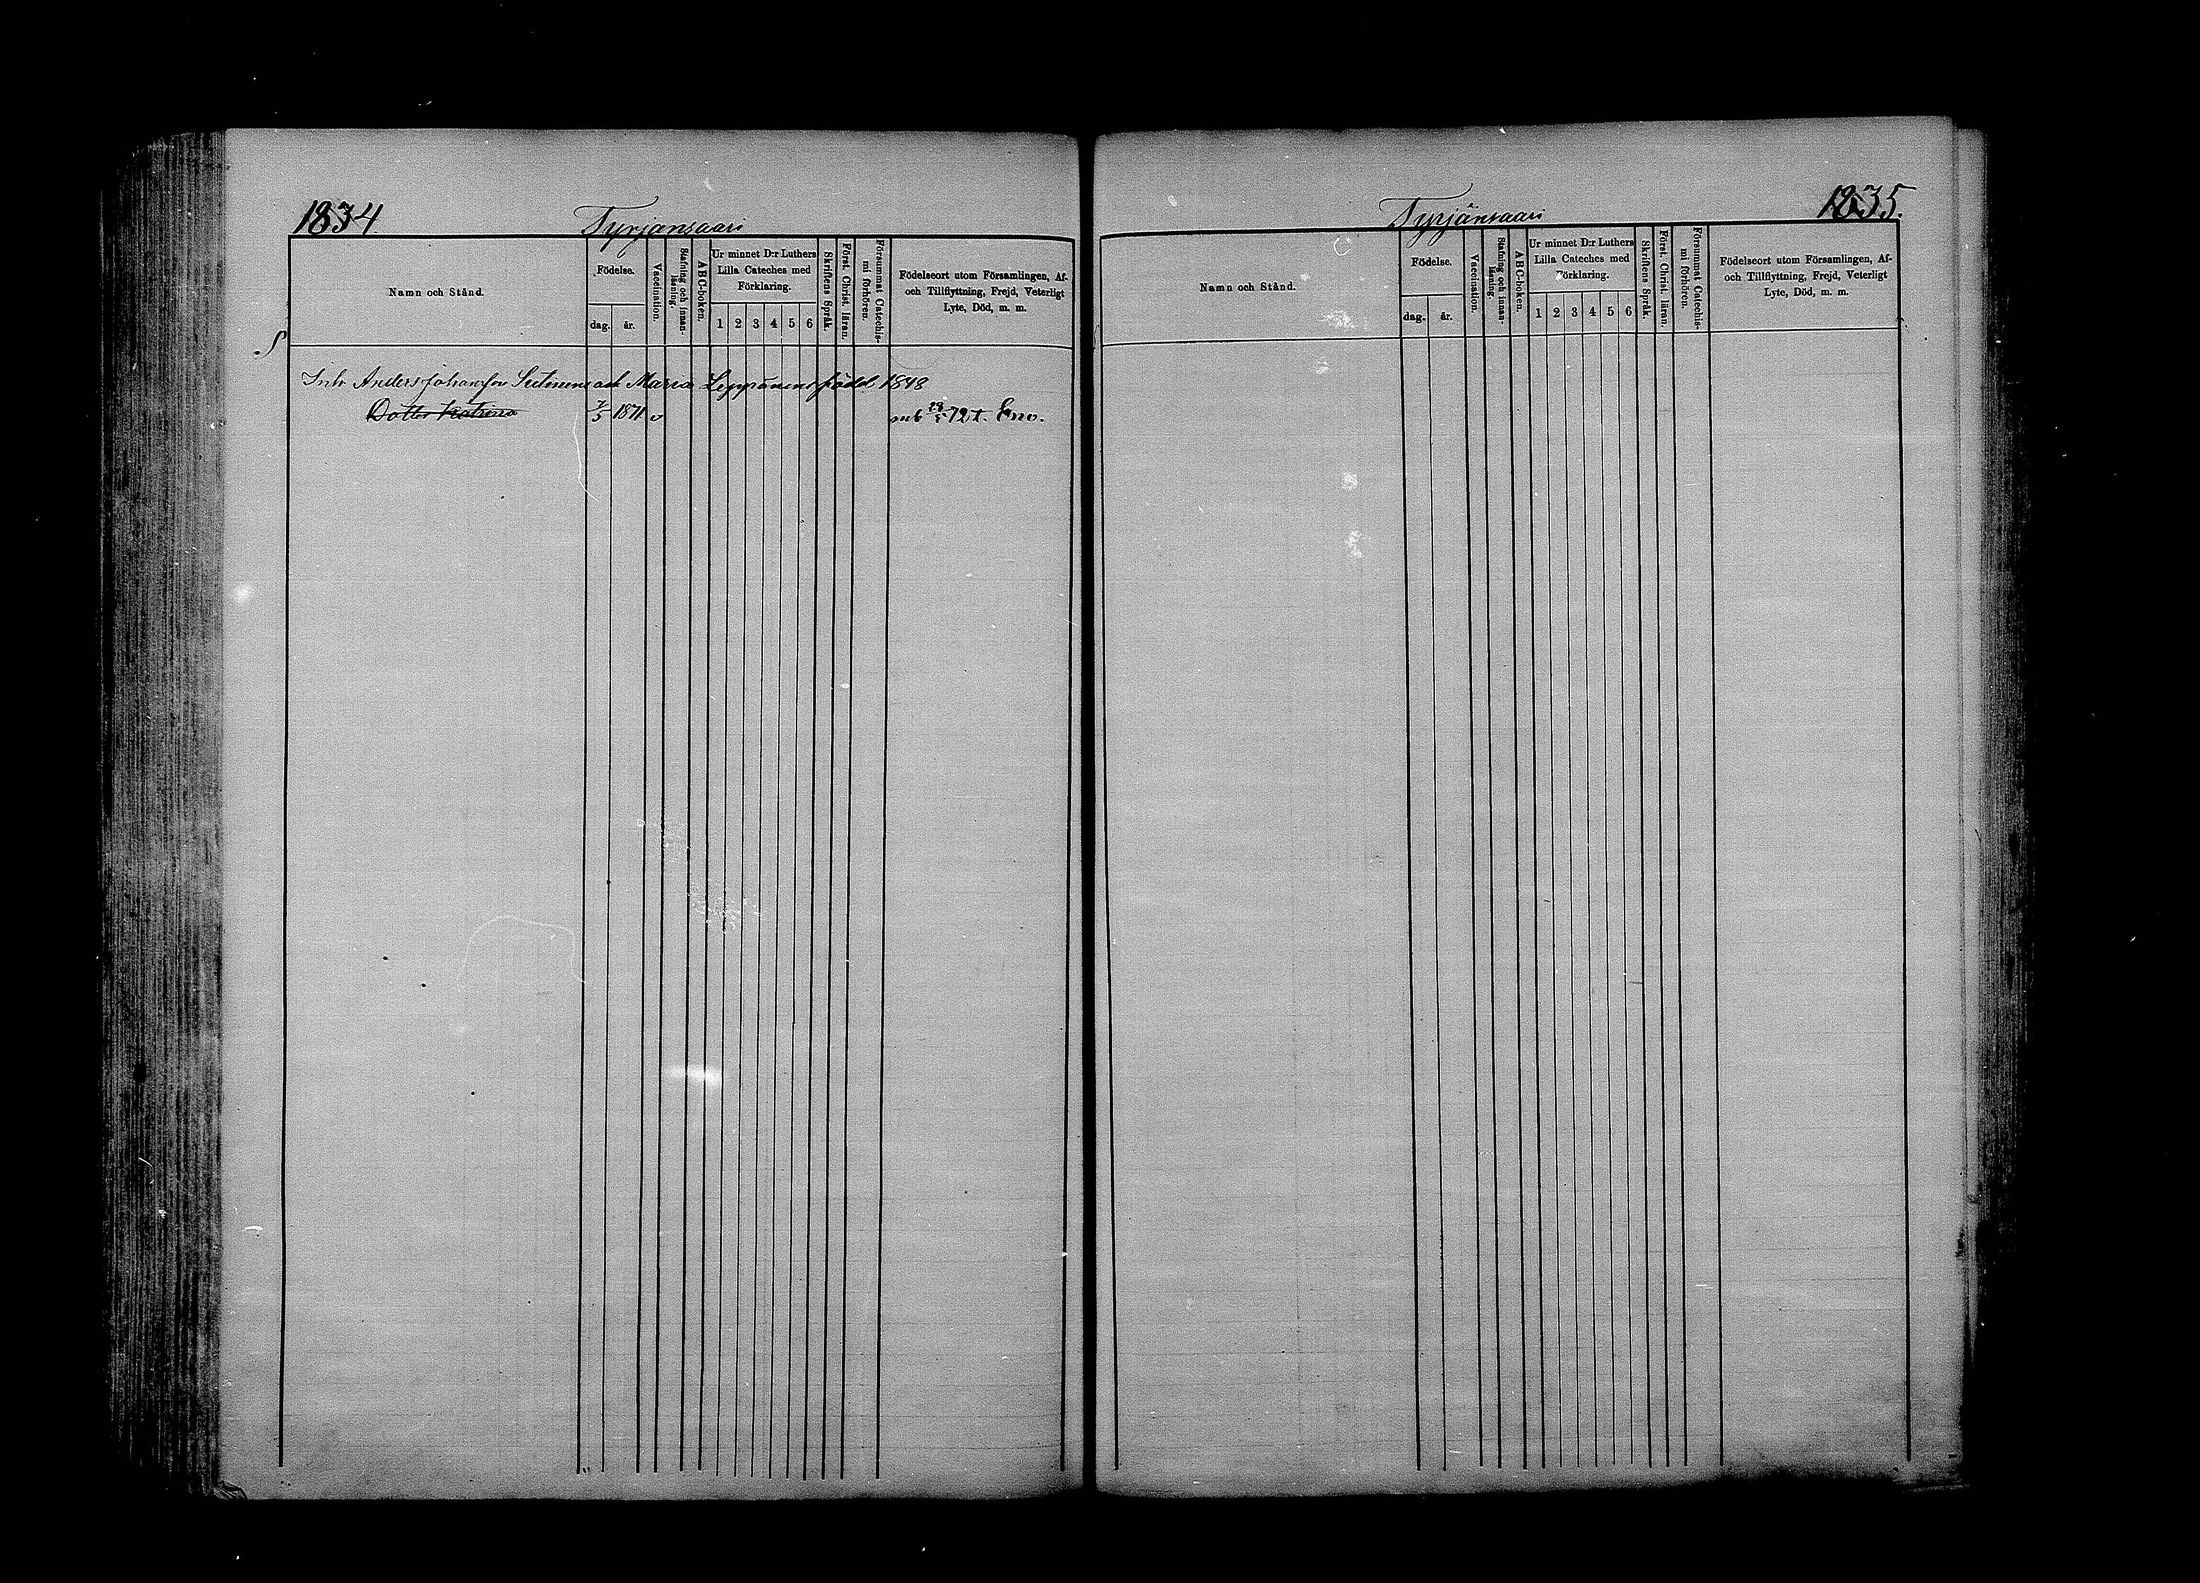 1834 Tyrjansaari
Namn och Stånd.
Födelse.
dag.
år.
Vaccination.
Stafning och innan-
läsning.
ABC-boken.
Ur minnet D:r Luthers
Lilla Cateches med
Förklaring.
1 2 3 4 5 6
Skriftens Språk.
Först. Christ. läran.
Försummat Catechis-
mi förhören.
Födelseort utom Församlingen, Af-
och Tillflyttning, Frejd, Veterligt
Lyte, Död, m. m.
Inh Anders Johansson och Maria Leppänens född 1848
Dotter Katrina 7/5 1871 v mb 72 t. Eno.
Tyrjänsaari 1835.
Namn och Stånd.
Födelse.
dag.
år.
Vaccination.
Stafning och innan-
läsning.
ABC-boken.
Ur minnet D:r Luthers
Lilla Cateches med
Förklaring.
1 2 3 4 5 6
Skriftens Språk.
Först. Christ. läran.
Försummat Catechis-
mi förhören.
Födelseort utom Församlingen, Af-
och Tillflyttning, Frejd, Veterligt
Lyte, Död, m. m.